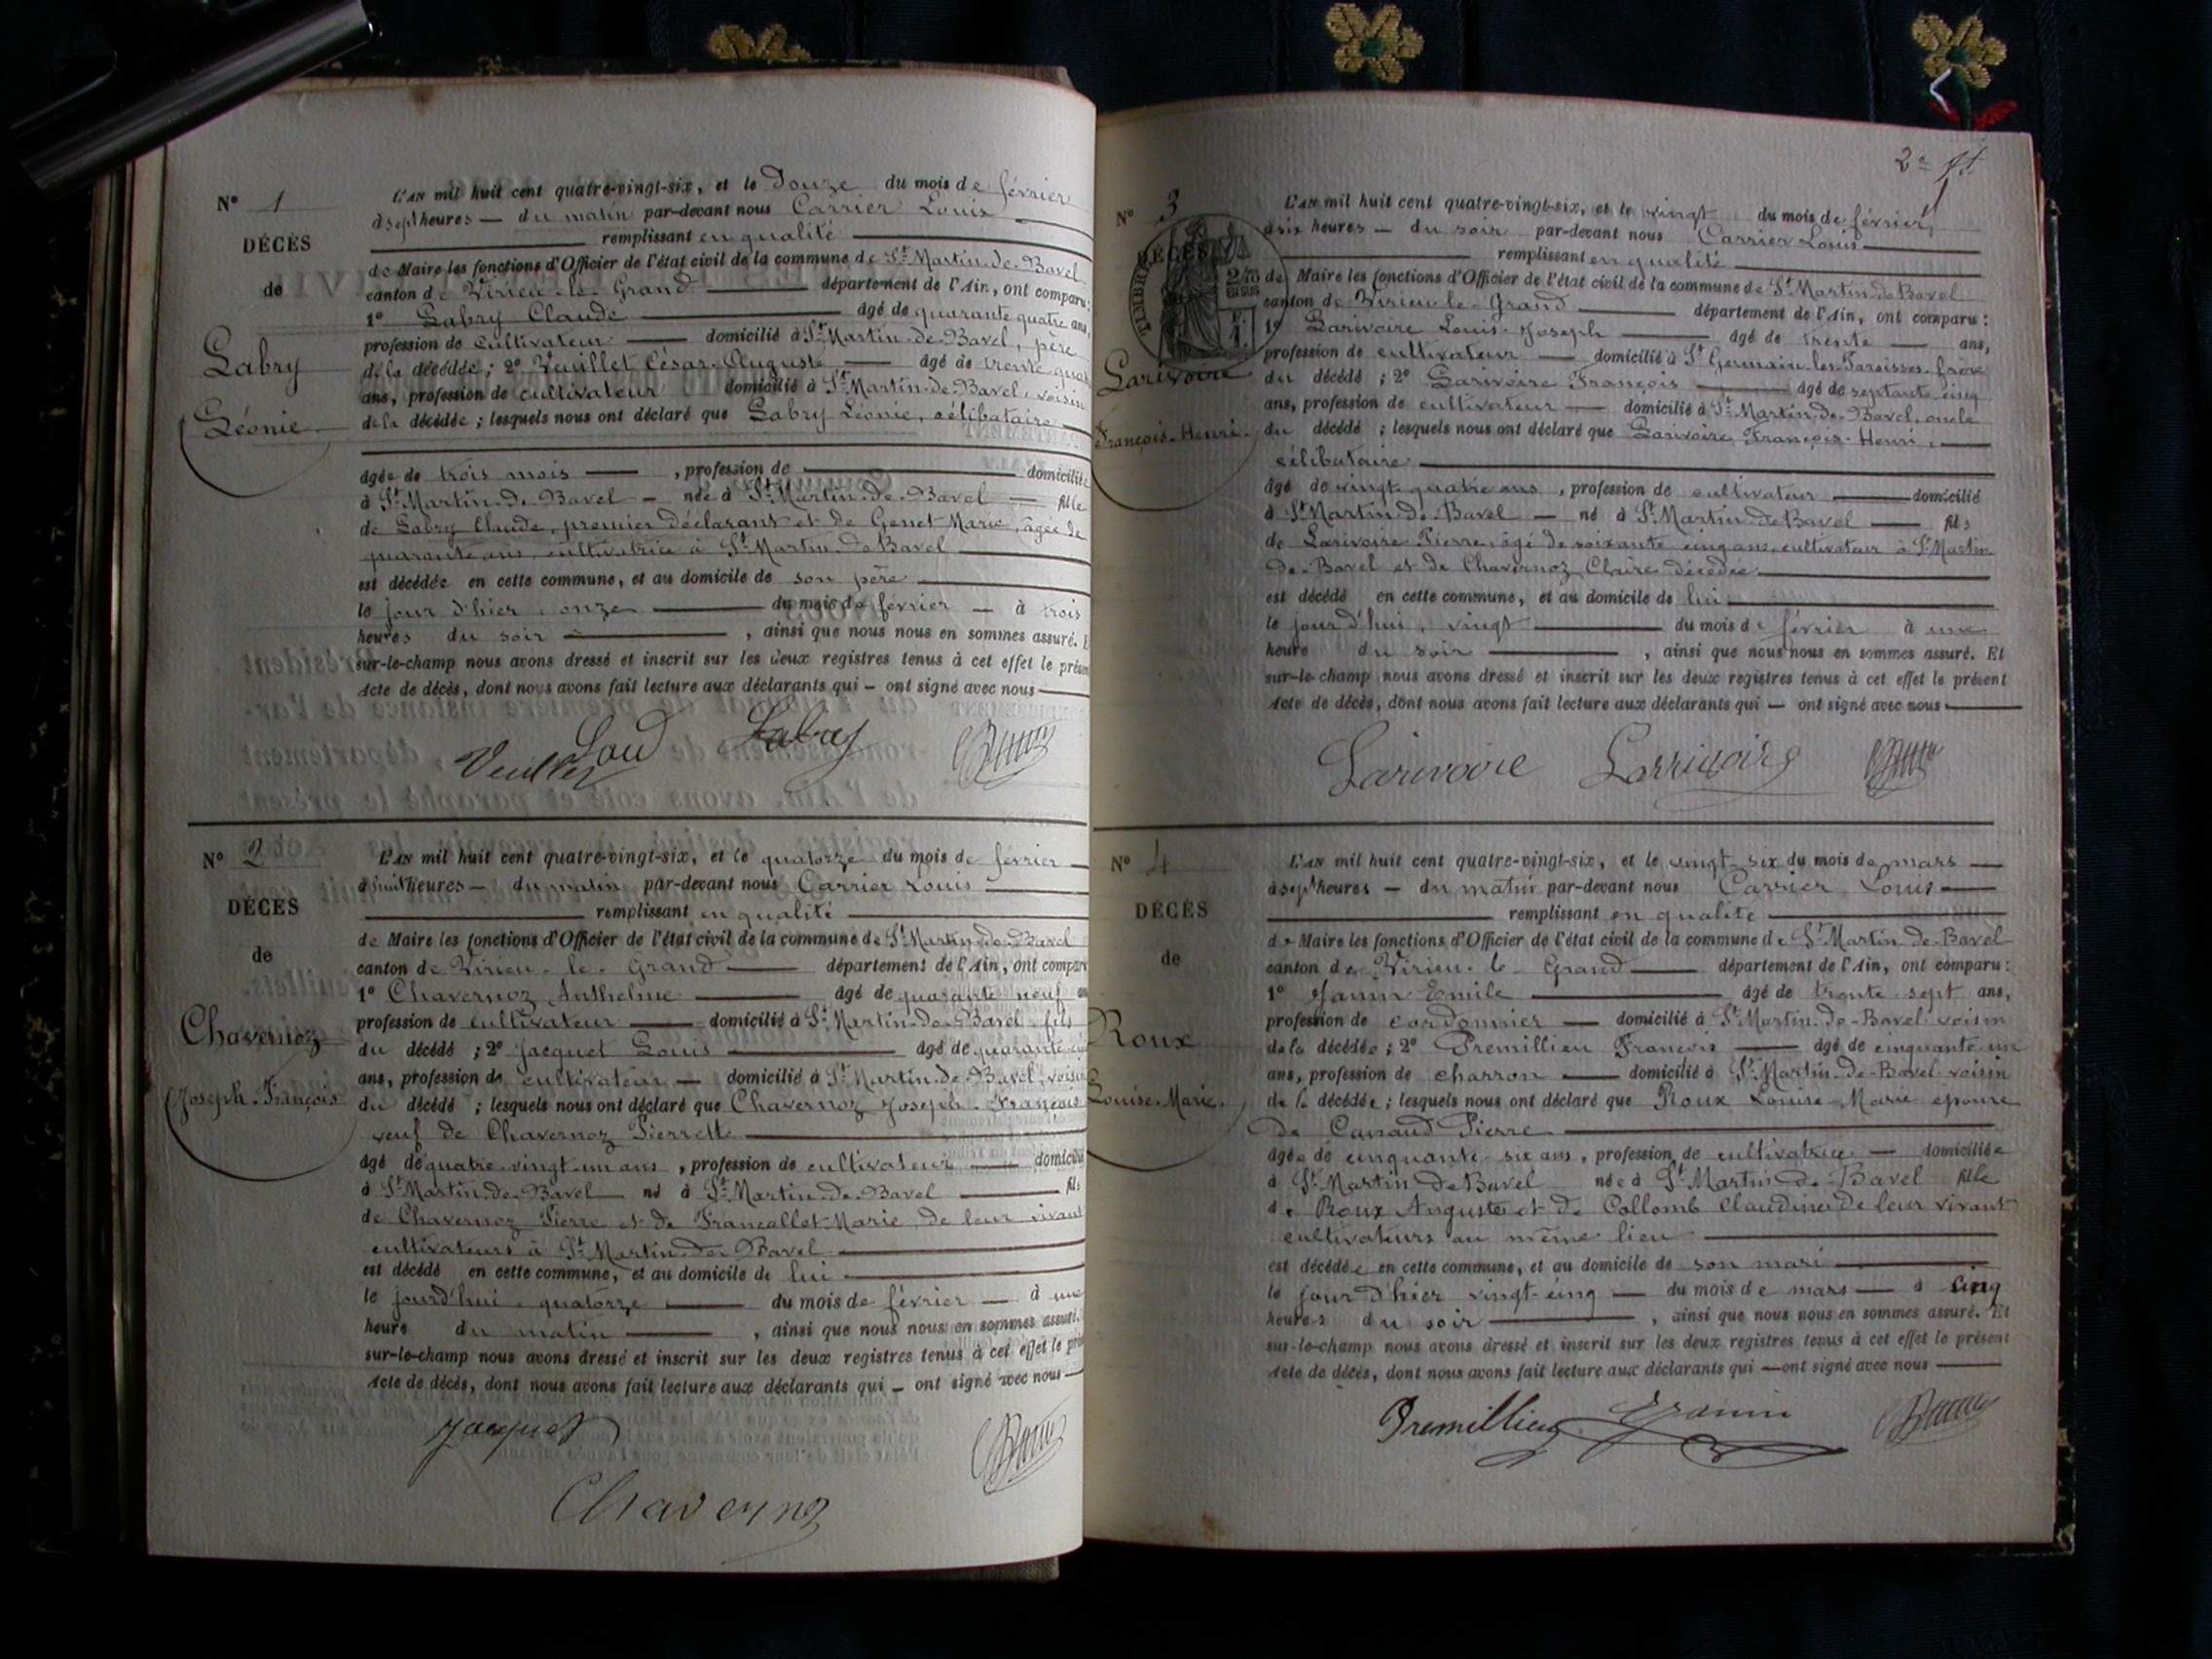 N° 1
DÉCÈS
de
Labry
Léonie
L'AN mil huit cent quatre-vingt-six, et le Douze du mois de février
à sept heures — du matin par-devant nous Carrier Louis
remplissant en qualité
de Maire les fonctions d'Officier de l'état civil de la commune de St Martin-de-Bavel
canton de Virieu-le-Grand département de l'Ain, ont comparu:
1° Labry Claude âgé de quarante quatre ans,
profession de cultivateur domicilié à St Martin-de-Bavel, père
de la décédée; 2° Veuillet César-Auguste âgé de trente
ans, profession de cultivateur domicilié à St Martin-de-Bavel, voisin
de la décédée; lesquels nous ont déclaré que Labry Léonie, célibataire
âgée de trois mois, profession de domiciliée
à St Martin-de-Bavel — née à St Martin-de-Bavel — fille
de Labry Claude, premier déclarant et de Genet Marie, âgée de
quarante ans, cultivatrice à St Martin-de-Bavel
est décédée en cette commune, et au domicile de son père
le jour d'hier, onze du mois de février — à trois
heures du soir, ainsi que nous nous en sommes assuré. E
sur-le-champ nous avons dressé et inscrit sur les deux registres tenus à cet effet le présen
Acte de décès, dont nous avons fait lecture aux déclarants qui — ont signé avec nous
Labry
N° 2
DÉCÈS
de
Chavernoz
Joseph-François
L'AN mil huit cent quatre-vingt-six, et le quatorze du mois de février
à huit heures — du matin par-devant nous Carrier Louis
remplissant en qualité
de Maire les fonctions d'Officier de l'état civil de la commune de St Martin-de-Bavel
canton de Virieu-le-Grand département de l'Ain, ont comparu
1° Chavernoz Anthelme âgé de quarante neuf an
profession de cultivateur domicilié à St Martin-de-Bavel, fils
du décédé; 2° Jacquet Louis âgé de quarante
ans, profession de cultivateur — domicilié à St Martin-de-Bavel, voisin
du décédé; lesquels nous ont déclaré que Chavernoz Joseph-François
veuf de Chavernoz Pierrette
âgé de quatre-vingt-un ans, profession de cultivateur domicilié
à St Martin-de-Bavel né à St Martin-de-Bavel fils
de Chavernoz Pierre et de Francallet Marie, de leur vivant
cultivateurs à St Martin-de-Bavel
est décédé en cette commune, et au domicile de lui
le jourd'hui, quatorze du mois de février — à une
heure du matin, ainsi que nous nous en sommes assuré.
sur-le-champ nous avons dressé et inscrit sur les deux registres tenus à cet effet le
Acte de décès, dont nous avons fait lecture aux déclarants qui — ont signé avec nous
Jacquet
Chavernoz
2e
N° 3
DÉCÈS
TIMBRE
Larivoire
François-Henri
L'AN mil huit cent quatre-vingt-six, et le vingt du mois de février,
à six heures — du soir par-devant nous Carrier Louis
remplissant en qualité
de Maire les fonctions d'Officier de l'état civil de la commune de St Martin-de-Bavel
canton de Virieu-le-Grand département de l'Ain, ont comparu:
1° Larivoire Louis-Joseph âgé de trente ans,
profession de cultivateur — domicilié à St Germain-les-Paroisses, frère
du décédé; 2° Larivoire François âgé de septante cinq
ans, profession de cultivateur — domicilié à St Martin-de-Bavel, oncle
du décédé; lesquels nous ont déclaré que Larivoire François-Henri,
célibataire
âgé de vingt-quatre ans, profession de cultivateur domicilié
à St Martin-de-Bavel — né à St Martin-de-Bavel — fils
de Larivoire Pierre, âgé de soixante cinq ans, cultivateur à St Martin
de-Bavel et de Chavernoz Claire décédée
est décédé en cette commune, et au domicile de lui
le jourd'hui, vingt du mois de février à une
heure du soir, ainsi que nous nous en sommes assuré. Et
sur-le-champ nous avons dressé et inscrit sur les deux registres tenus à cet effet le présent
Acte de décès, dont nous avons fait lecture aux déclarants qui — ont signé avec nous
Larivoire Larrivoire
N° 4
DÉCÈS
de
Roux
Louise-Marie
L'AN mil huit cent quatre-vingt-six, et le vingt-six du mois de mars
à sept heures — du matin par-devant nous Carrier Louis
remplissant en qualité
de Maire les fonctions d'Officier de l'état civil de la commune de St Martin-de-Bavel
canton de Virieu-le-Grand département de l'Ain, ont comparu:
1° Janin Emile âgé de trente-sept ans,
profession de cordonnier — domicilié à St Martin-de-Bavel voisin
de la décédée; 2° Premillieu François âgé de cinquante-un
ans, profession de charron domicilié à St Martin-de-Bavel voisin
de la décédée; lesquels nous ont déclaré que Roux Louise-Marie épouse
de Canaud Pierre
âgée de cinquante-six ans, profession de cultivatrice — domiciliée
à St Martin-de-Bavel née à St Martin-de-Bavel fille
de Roux Auguste et de Collomb Claudine de leur vivant
cultivateurs au même lieu
est décédée en cette commune, et au domicile de son mari
le jour d'hier vingt-cinq — du mois de mars — à cinq
heures du soir, ainsi que nous nous en sommes assuré. Et
sur-le-champ nous avons dressé et inscrit sur les deux registres tenus à cet effet le présent
Acte de décès, dont nous avons fait lecture aux déclarants qui — ont signé avec nous
Premillieu E Janin